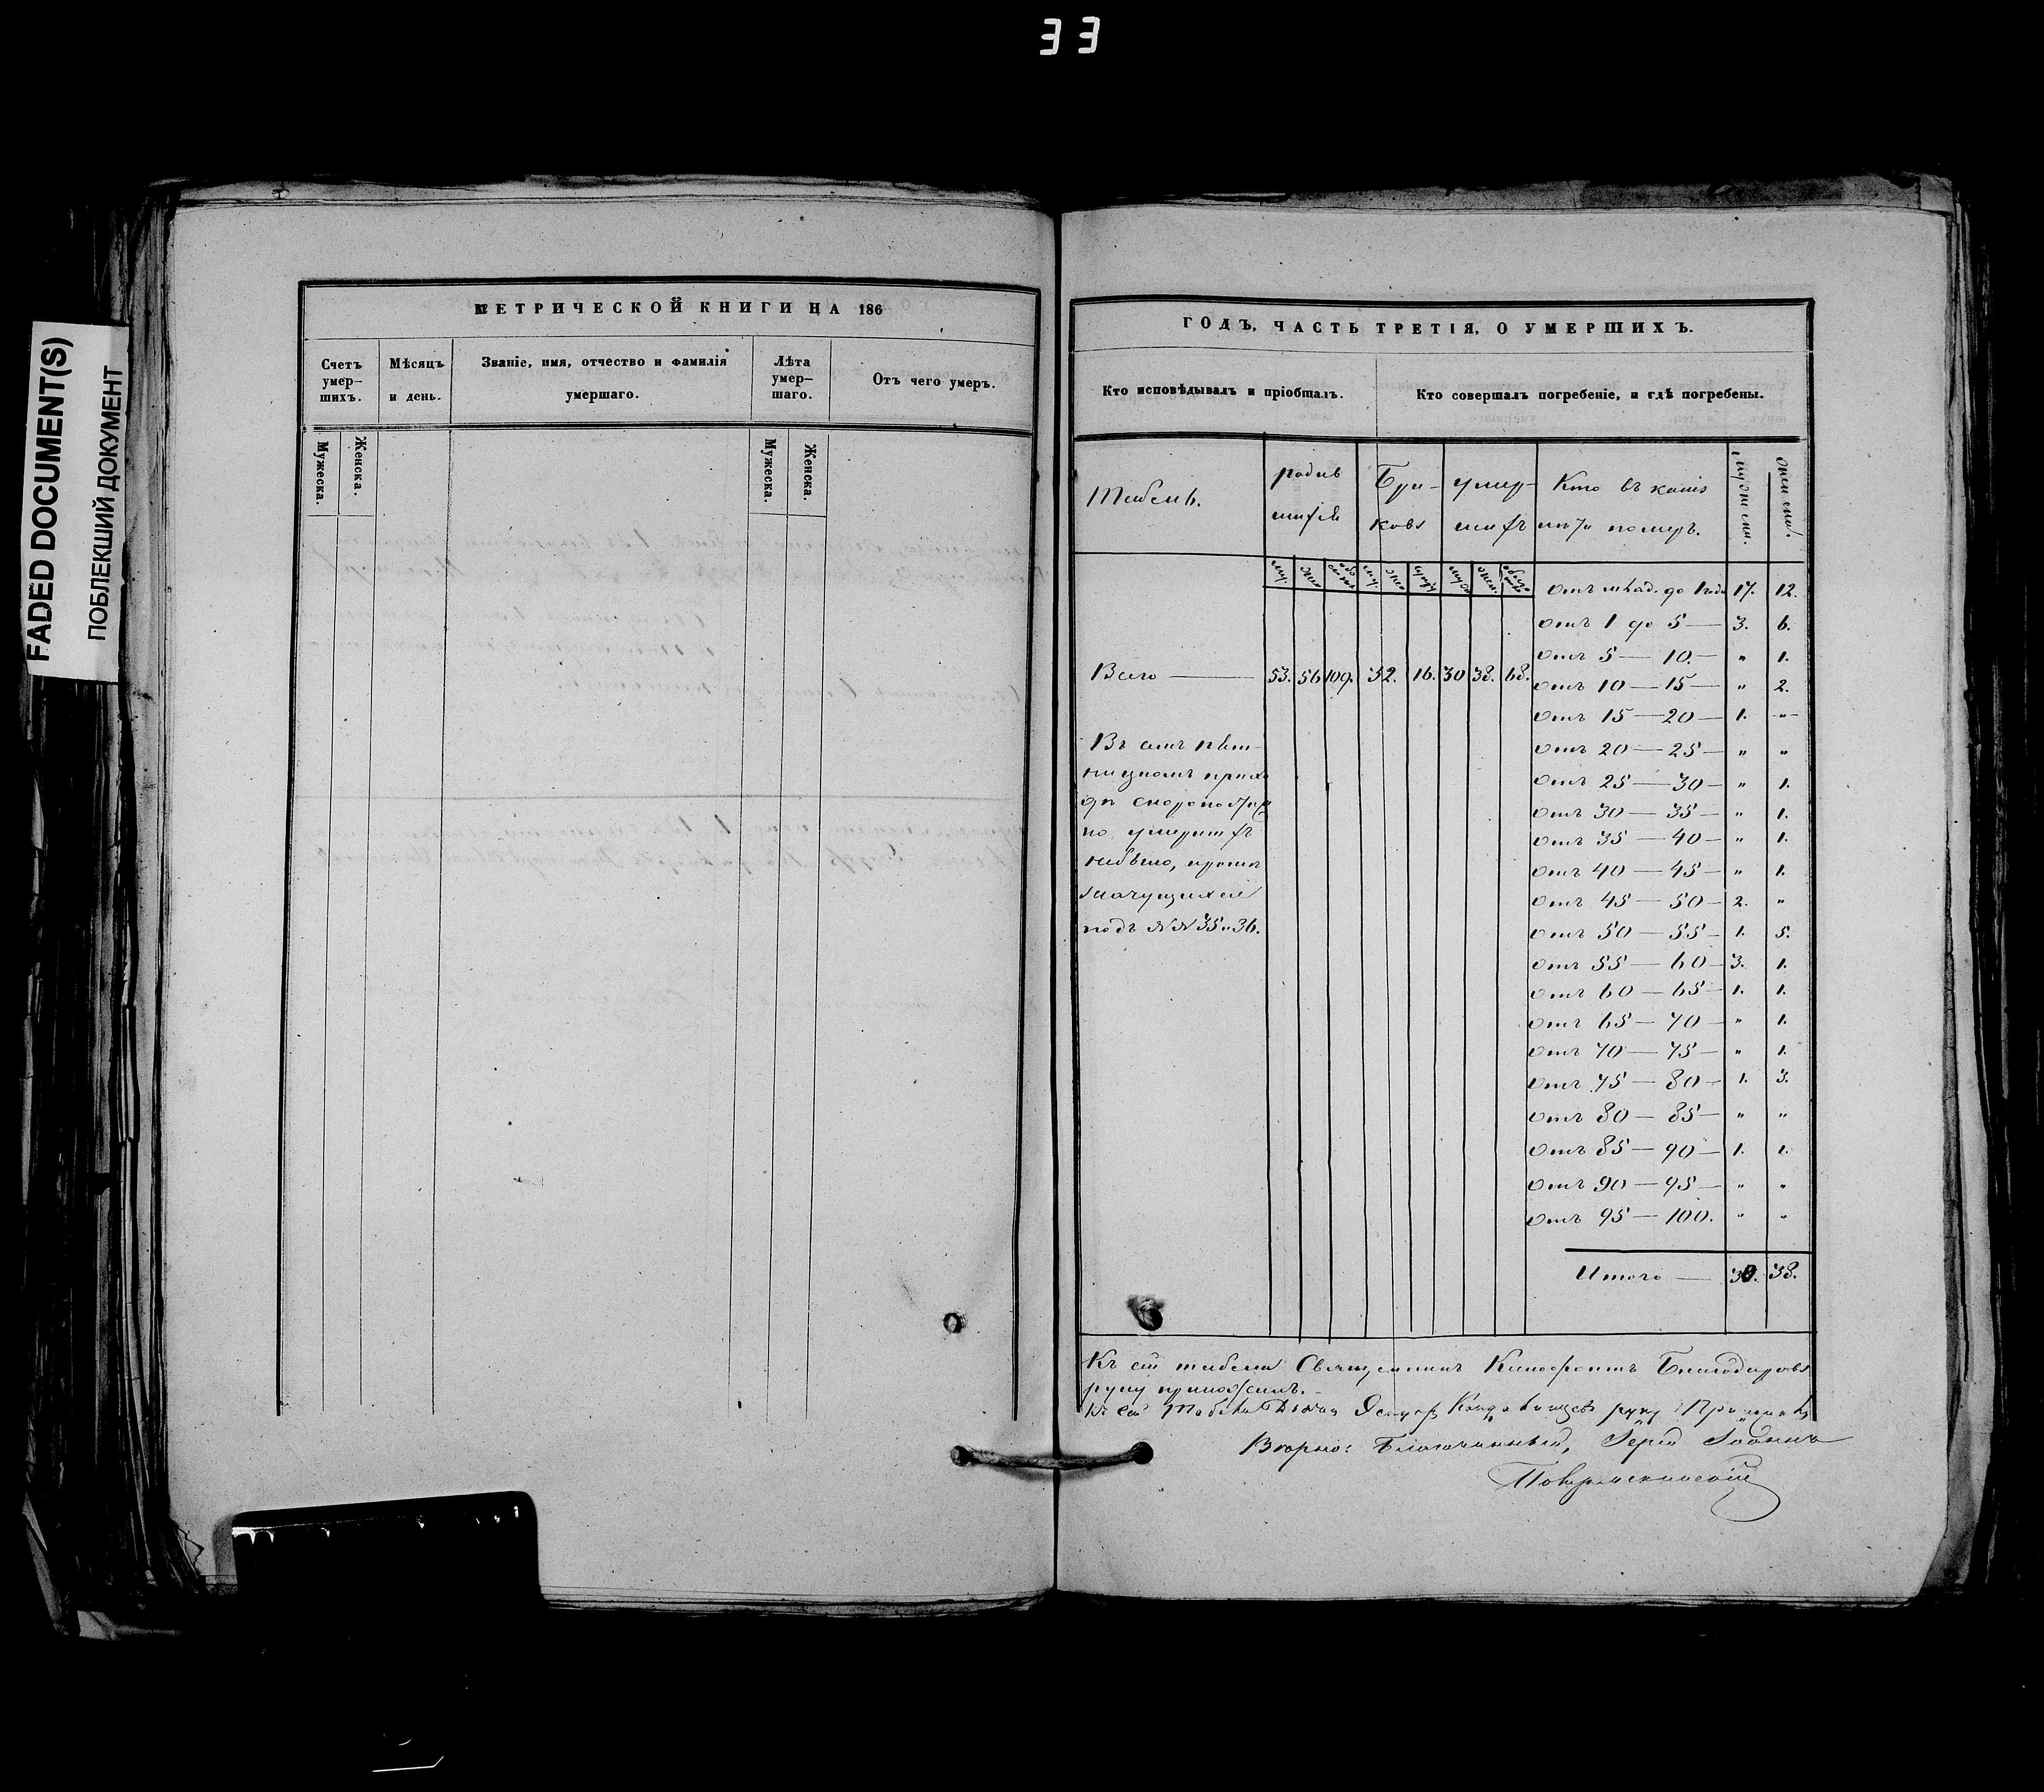 33
FADED DOCUMENT(S)
ПОБЛЕКШИЙ ДОКУМЕНТ
МЕТРИЧЕСКОЙ КНИГИ НА 186
Счетъ умер— шихъ.
Мѣсяцъ и день.
Званіе, имя, отчество и фамилія умершаго.
Лѣта умер— шаго.
Отъ чего умеръ.
Мужеска. Женска. Мужеска. Женска.
ГОДЪ, ЧАСТЬ ТРЕТІЯ, О УМЕРШИХЪ.
Кто исповѣдывалъ и пріобщалъ.
Кто совершалъ погребеніе, и гдѣ погребены.
Табель.
родив шихся
Бра- ковъ
умер- шихъ
Кто въ какіе померъ.
отъ млад. до 1 года 17. 12.
отъ 1 до 5 — 3. 6.
отъ 5 — 10. — " 1.
Всего — 53. 56 109. 32. 16. 30 38. 68.
отъ 10 — 15 — " 2.
отъ 15 — 20 — 1. "
отъ 20 — 25 — " "
отъ 25 — 30 — " 1.
отъ 30 — 35 — " 1.
отъ 35 — 40 — " 1.
отъ 40 — 45 — " 1.
отъ 45 — 50 — 2. "
отъ 50 — 55 — 1. 5.
отъ 55 — 60 — 3. 1.
отъ 60 — 65 — 1. 1.
отъ 65 — 70 — " 1.
отъ 70 — 75 — " 1.
отъ 75 — 80 — 1. 3.
отъ 80 — 85 — " "
отъ 85 — 90 — 1. 1.
отъ 90 — 95 — " "
отъ 95 — 100. " "
Итого — 30. 38.
Въ семъ
прихо
дѣ скоропостиж
но умершихъ
небыло, кромѣ
значущихся
подъ №№ 35 и 36.
Къ сей табели Священникъ Ксенофонтъ Благодаровъ
руку приложилъ.
Къ сей Табели Дьячекъ руку Приложилъ
Вѣрно: Благочинный, Іерей Іоаннъ